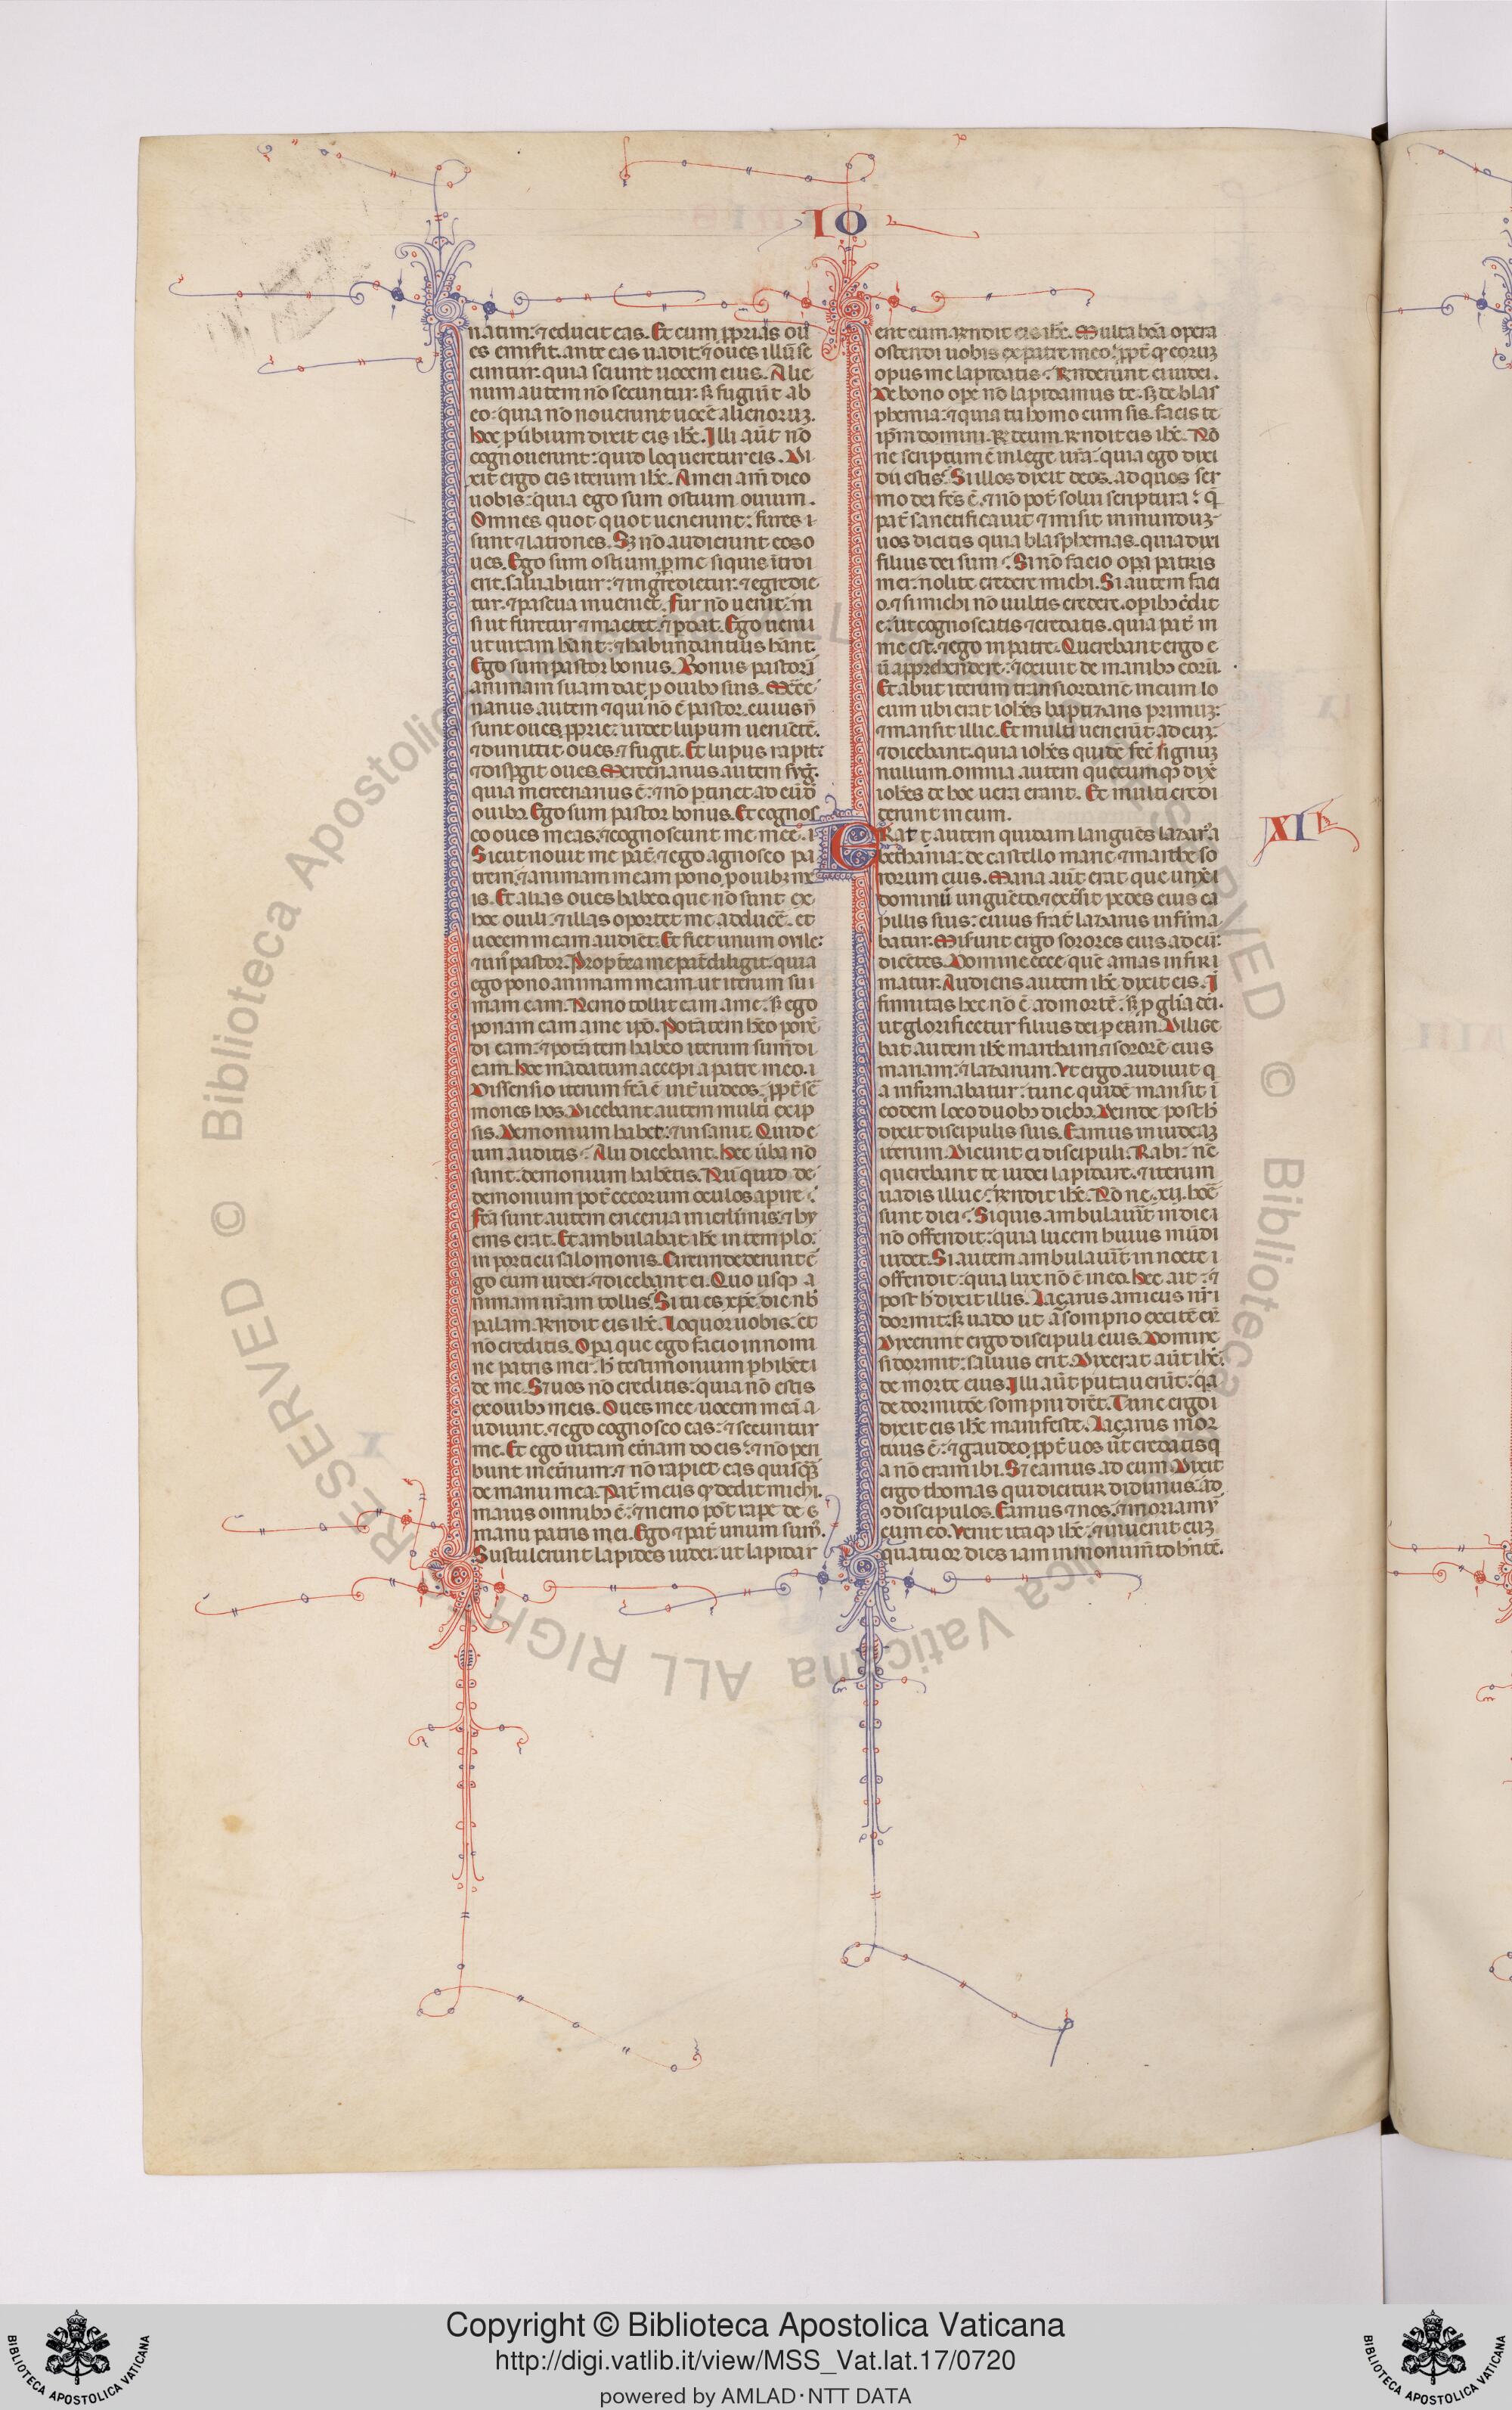 IO
natim: ⁊ educit eas. Et cum p̱prias oū
es emisit. ante eas uadit: ⁊ oues illū se
cuntur. quia sciunt uocem eius. Alie
num autem nō secuntur. sꝫ fugiūt ab
eo: quia nō nouerunt uocē alienoruꝫ.
Hoc puͥbium dixit eis ihc̄. Illi aūt nō
cognouerunt: quid loqueretur eis. Di
xit ergo eis iterum ihc̄. Amen am̄ dico
uobis: quia ego sum ostium ouium.
Omnes quot quot uenerunt: fures i
sunt ⁊ latrones. Sꝫ nō audierunt eos o
ues. Ego sum ostium. ꝑ me siquis ītroi
erit. saluabitur: ⁊ ingredietur: ⁊ egredie
tur. ⁊ pascua inueniet. Fur nō uenit: ni
si ut furetur ⁊ mactet: ⁊ ꝑdat. Ego ueni
ut uitam hāt: ⁊ habundantius hāt.
Ego sum pastor bonus. Bonus pastor ī
animam suam dat ꝓ ouibꝫ suis. Mercē
narius autem ⁊ qui nō ē pastor. cuius n̄
sunt oues ꝓprie: uidet lupum ueniētē.
⁊ dimittit oues ⁊ fugit. Et lupus rapit:
⁊ dispgit oues. Mercenarius autem fuḡ.
quia mercenarius ē: ⁊ nō ꝑtinet ad eū d̄
ouibꝫ. Ego sum pastor bonus. Et cognos
co oues meas. ⁊ cognoscunt me mee. i
Sicut nouit me pat̄. ⁊ ego agnosco pa
trem. ⁊ animam meam pono ꝓ ouibꝫ me
is. Et alias oues habeo. que nō sunt ex
hoc ouili: ⁊ illas oportet me adducē. et
uocem meam audiēt. Et fiet unum ouile:
⁊ un̄ pastor. Propt̄ea me pat̄ diligit: quia
ego pono animam meam. ut iterum su i
mam eam. Nemo tollit eam a me: sꝫ ego
ponam eam a me ip̄o. Potātem hēo ponē
di eam: ⁊ potātem habeo iterum sumēdi
eam. Hoc mādatum accepi a patre meo. i
Dissensio iterum fcā ē int̄ iudeos: ꝓpt̄ s̄
mones hos. Dicebant autem multi ex ip
sis. Demonium habet: ⁊ insanit. Quid e
um auditis? Alii dicebant. Hec ūba nō
sunt: demonium habētis. Nūquid de
demonium pot̄ cecorum oculos apire?
Fcā sunt autem encenia in ierl̄imis: ⁊ hy
ems erat. Et ambulabat ihc̄ in templo:
in porticu salomonis. Circundederunt ē
go eum iudei: ⁊ dicebant ei. Quo usqꝫ a
nimam nr̄am tollis? Si tu es xp̄c: dic nb̄
palam. Rn̄dit eis ihc̄. Loquor uobis: et
nō creditis. Opa que ego facio in nomi
ne patris mei: h̄ testimonium ꝑhibēt i
de me. Sꝫ uos nō creditis: quia nō estis
ex ouibꝫ meis. Oues mee uocem meā a
udiunt. ⁊ ego cognosco eas: ⁊ secuntur
me. Et ego uitam et̄nam do eis: ⁊ nō peri
bunt in et̄num: ⁊ nō rapiet eas quisqꝫ
de manu mea. Pat̄ meus qd̄ dedit michi.
maius omnibꝫ ē: ⁊ nemo pōt rape de
manu patris mei. Ego ⁊ pat̄ unum sum.
Sustulerunt lapides iudei: ut lapidar
ent eum. Rn̄dit eis ihc̄. Multa bōa opera
ostendi uobis ex patre meo: ꝓpt̄ qd̄ eoruꝫ
opus me lapidatis? Rn̄derunt ei iudei.
De bono ope nō lapidamus te: sꝫ de blas
phemia: ⁊ quia tu homo cum sis. facis te
ip̄m deum. Rn̄dit eis ihc̄. Nō
ne scriptum ē in lege ur̄a: quia ego dixi
dii estis? Si illos dixit deos. ad quos ser
mo dei fc̄s ē. ⁊ nō pot̄ solui scriptura: q̄
pat̄ sanctificauit ⁊ misit in munduꝫ
uos dicitis quia blasphemas. quia dixi
filius dei sum? Si nō facio opa patris
mei: nolite credere michi. Si autem faci
o. ⁊ si michi nō uultis credere. opibꝫ c̄dit
e: ut cognoscatis ⁊ credatis. quia pat̄ in
me est. ⁊ ego in patre. Querebant ergo e
ū apprehendere: ⁊ exiuit de manibꝫ eorū.
Et abiit iterum trans iordanē. in eum lo
cum ubi erat ioħes baptizans primuꝫ:
⁊ mansit illic. Et multi uenerūt ad euꝫ:
⁊ dicebant. quia ioħes quidē fec̄ signuꝫ
nullum. omnia autem quecumqꝫ dix̄
ioħes de hoc uera erant. Et multi credi
derunt in eum.
XI
ERat autem quidam languēs lazarꝰ a
bethania: de castello marie ⁊ marthe so
rorum eius. Maria aūt erat que unxi
dominū unguēto. ⁊ ext̄sit pedes eius ca
pillis suis: cuius frat̄ lazarus infirma
batur. Miserunt ergo sorores eius ad eū:
dicētes. Domine ecce quē amas infiri
matur. Audiens autem ihc̄ dixit eis. I
firmitas hec nō ē ad mortē. sꝫ ꝓ gl̄ia dei.
ut glorificetur filius dei ꝑ eam. Dilige
bat autem ihc̄ martham ⁊ sororē eius
mariam: ⁊ lazarum. Vt ergo audiuit q
a infirmabatur: tunc quidē mansit ī
eodem loco duobꝫ diebꝫ. Deinde post h̄
dixit discipulis suis. Eamus in iudeaꝫ
iterum. Dicunt ei discipuli. Rabi: nc̄
querebant te iudei lapidare. ⁊ iterum
uadis illuc? Rn̄dit ihc̄. Nō ne .xii. hore
sunt diei? Siquis ambulauīt in die i
nō offendit: quia lucem huius mūdi
uidet. Si autem ambulauīt in nocte i
offendit: quia lux nō ē in eo. Hec ait: ⁊
post h̄ dixit illis. Lazarus amicus nr̄ i
dormit: sꝫ uado ut a sompno excitē eū
Dixerunt ergo discipuli eius. Domine
si dormit: saluus erit. Dixerat aūt ihc̄.
de morte eius. Illi aūt putauerūt: qa
de dormitōe sompnii dicēt. Tunc ergo i
dixit eis ihc̄ manifeste. Lazarus mor
tuus ē: ⁊ gaudeo ꝓpt̄ uos ut credatis q
a nō eram ibi. Sꝫ eamus ad eum. Dixit
ergo thomas qui dicitur didimus: ad
ꝯdiscipulos. Eamus ⁊ nos. ⁊ moriamur
cum eo. Venit itaqꝫ ihc̄: ⁊ inuenit euꝫ
quatuor dies iam in monumēto hn̄tē.
Copyright © Biblioteca Apostolica Vaticana
http://digi.vatlib.it/view/MSS_Vat.lat.17/0720
powered by AMLAD·NTT DATA
BIBLIOTECA APOSTOLICA VATICANA
BIBLIOTECA APOSTOLICA VATICANA
© Biblioteca Apostolica Vaticana ALL RIGHTS RESERVED